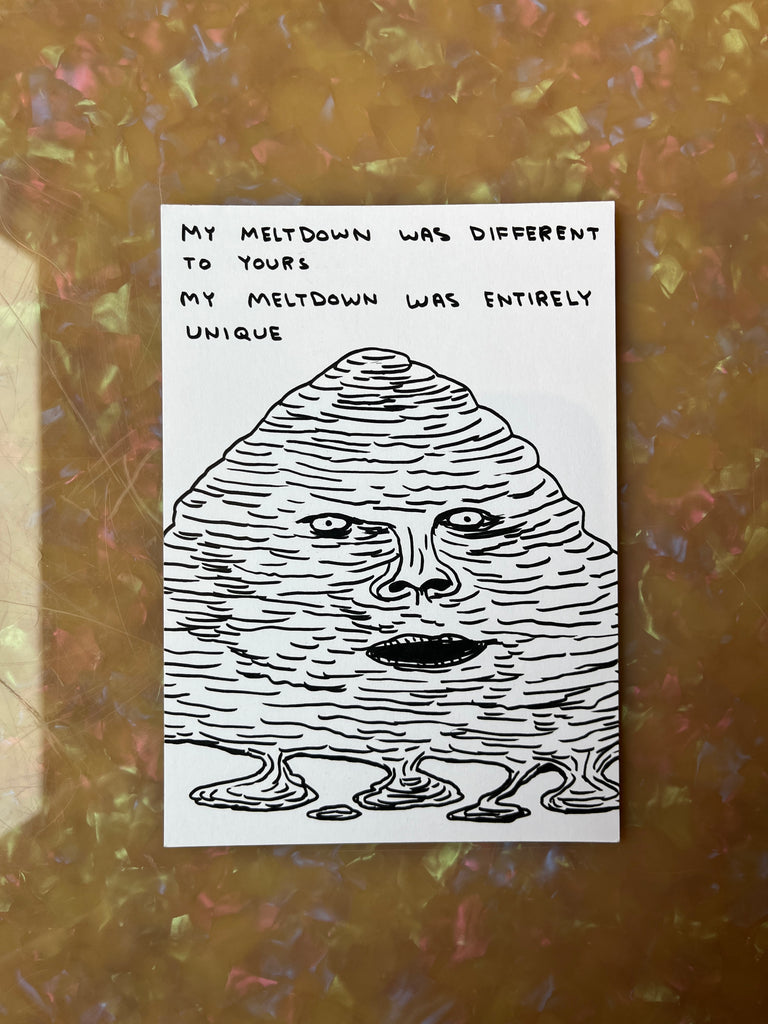 MY MELTDOWN WAS DIFFERENT
TO YOURS
MY MELTDOWN WAS ENTIRELY
UNIQUE